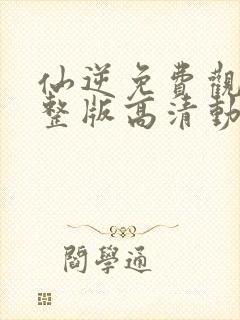 仙逆免費觀
整版高清動
閻學通